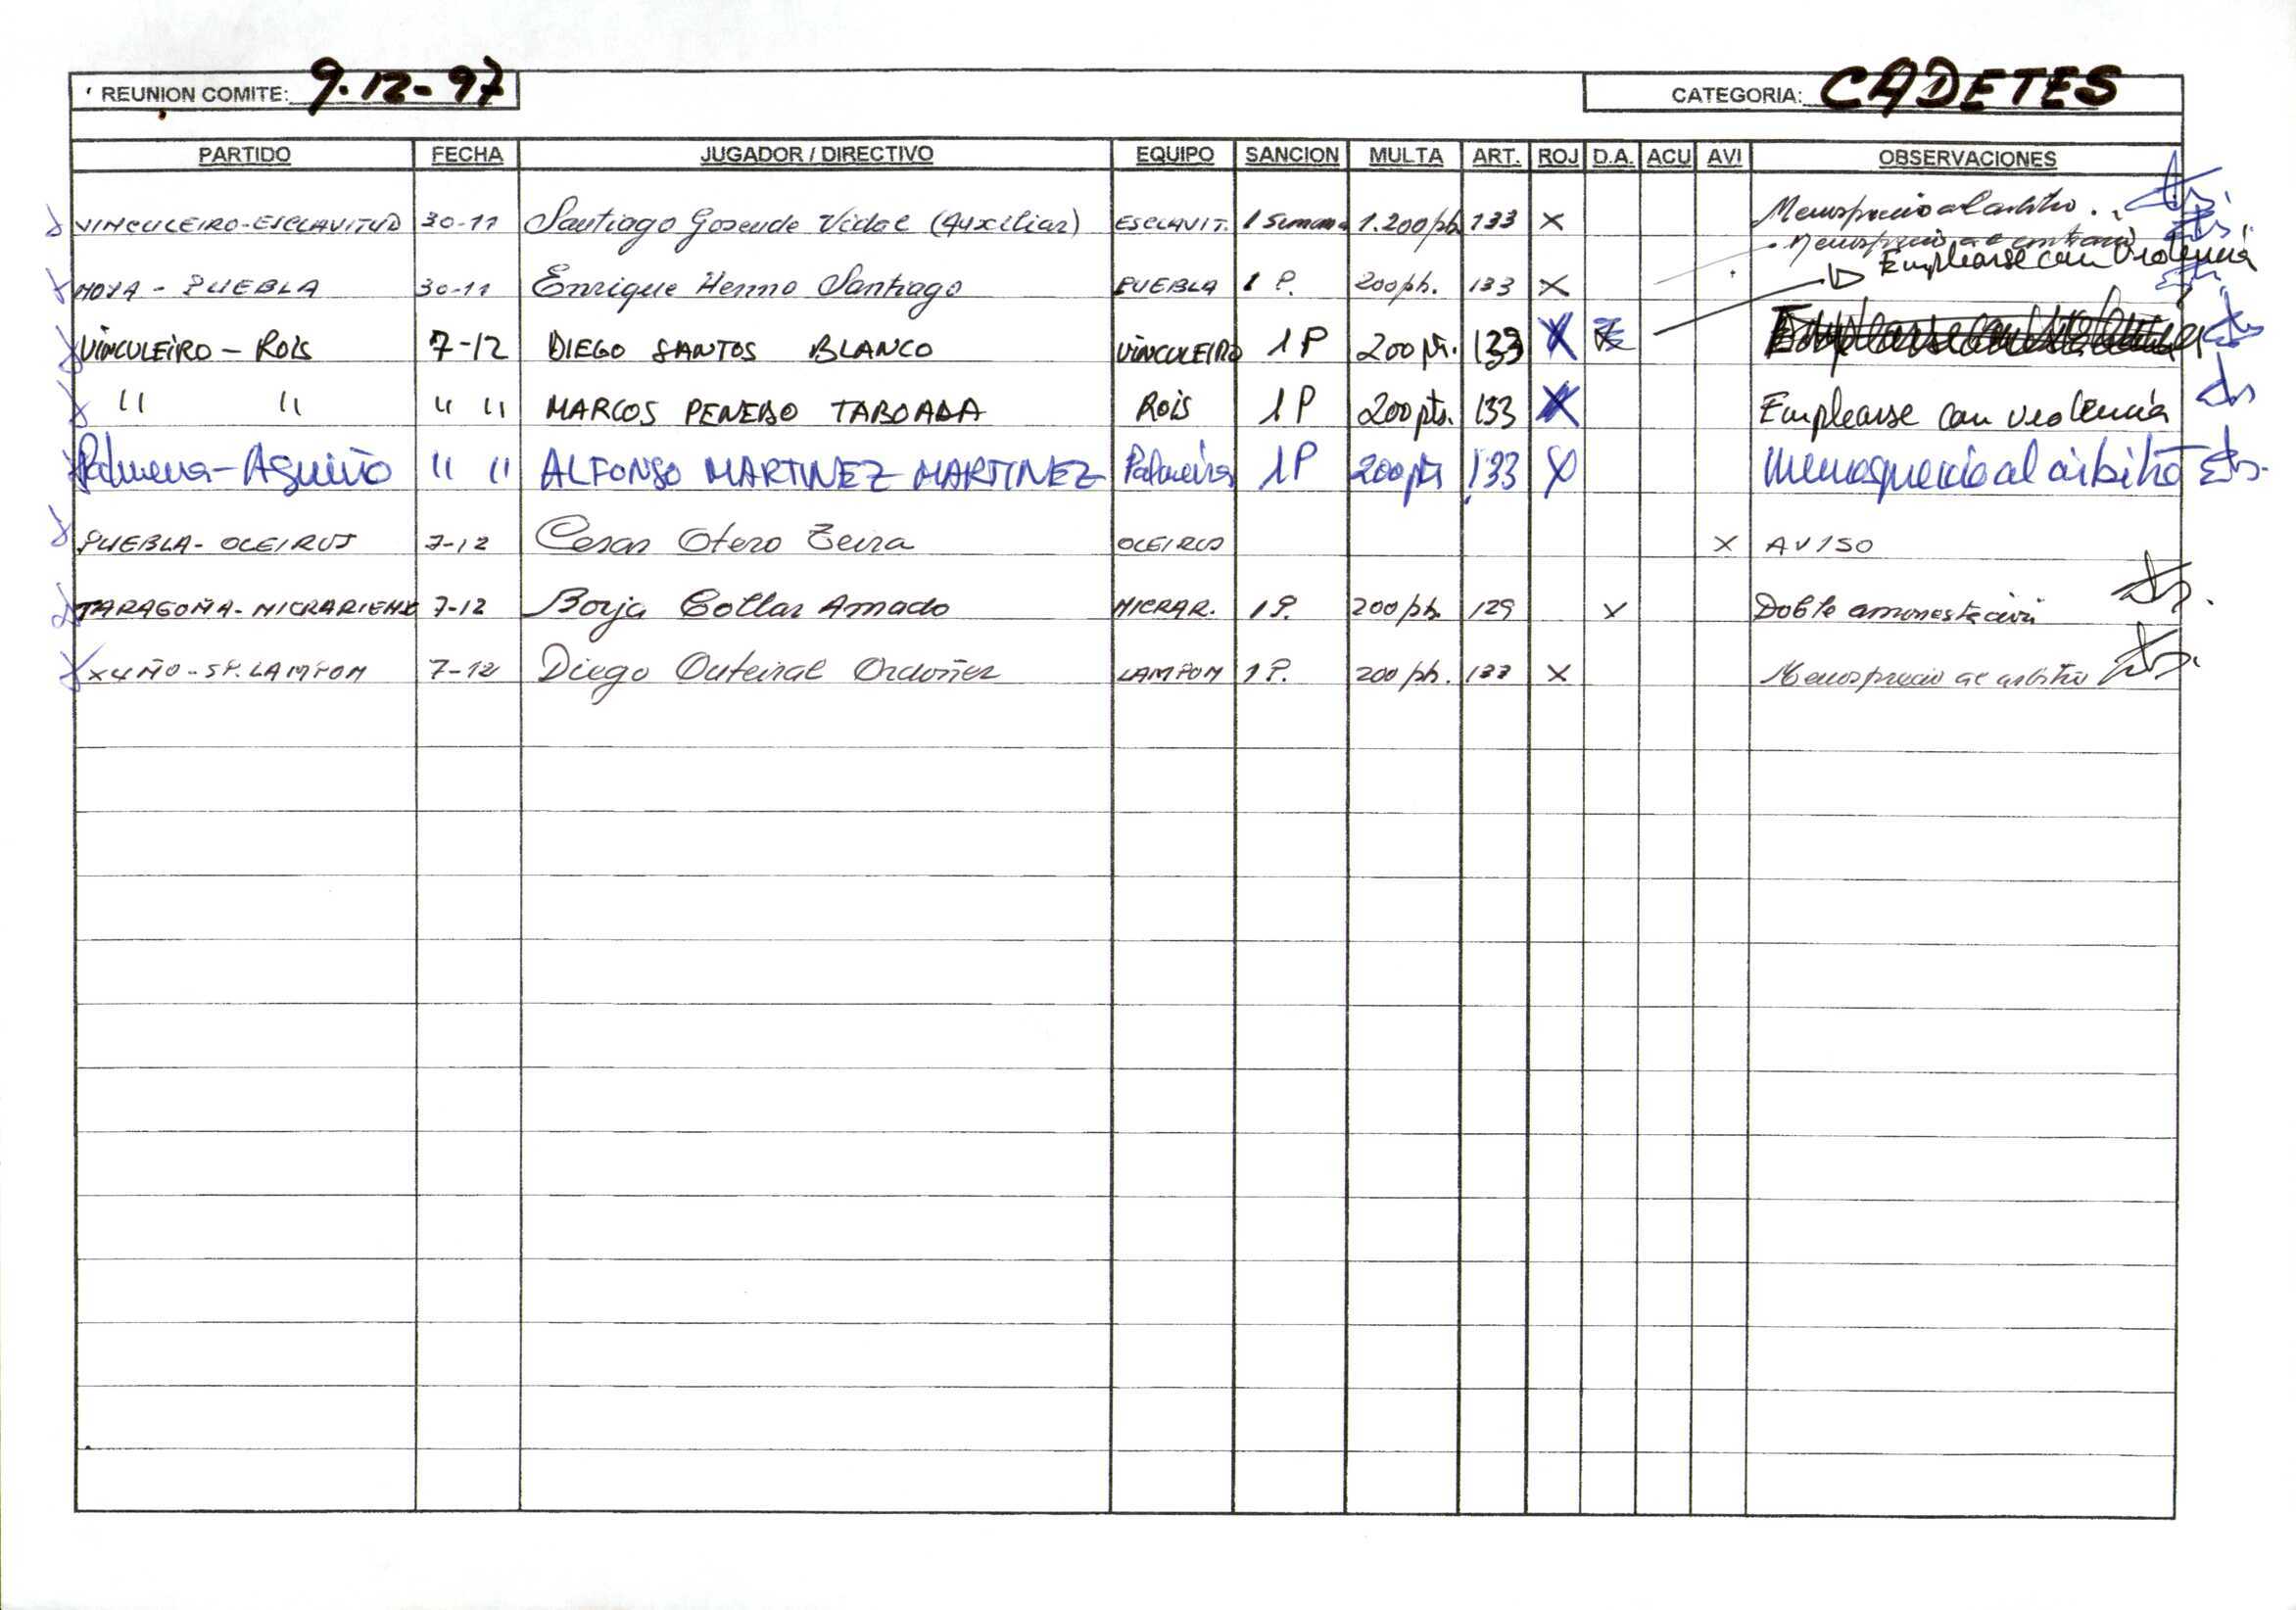 REUNION COMITE: 9-12-97 CATEGORIA: CADETES
PARTIDO FECHA JUGADOR / DIRECTIVO EQUIPO SANCION MULTA ART. ROJ D.A. ACU AVI OBSERVACIONES
VINCULEIRO-ESCLAVITUD 30-11 Santiago Gosende Vidal (Auxiliar) ESCLAVIT. 1 Semana 1.200 pts 133 X Menosprecio al arbitro.
Menosprecio al
Emplearse con violencia
NOYA - PUEBLA 30-11 Enrique Hermo Santiago PUEBLA 1 P. 200 pts. 133 X
VINCULEIRO - ROIS 7-12 DIEGO SANTOS BLANCO VINCULEIRO 1P 200 pts. 133 X X
" " " " MARCOS PENEDO TABOADA ROIS 1P 200 pts. 133 X Emplearse con violencia
Palmeira-Aguiño " " ALFONSO MARTINEZ MARTINEZ Palmeira 1P 200 pts 133 X Menosprecio al arbitro
PUEBLA- OLEIROS 7-12 Cesar Otero Teira OLEIROS X AVISO
TARAGOÑA- MICRARIENX 7-12 Borja Collar Amado MICRAR. 1 P. 200 pts. 129 X Doble amonestación
XUÑO - SP. LAMPON 7-12 Diego Outeiral Ordoñez LAMPON 1 P. 200 pts. 133 X Menosprecio al arbitro